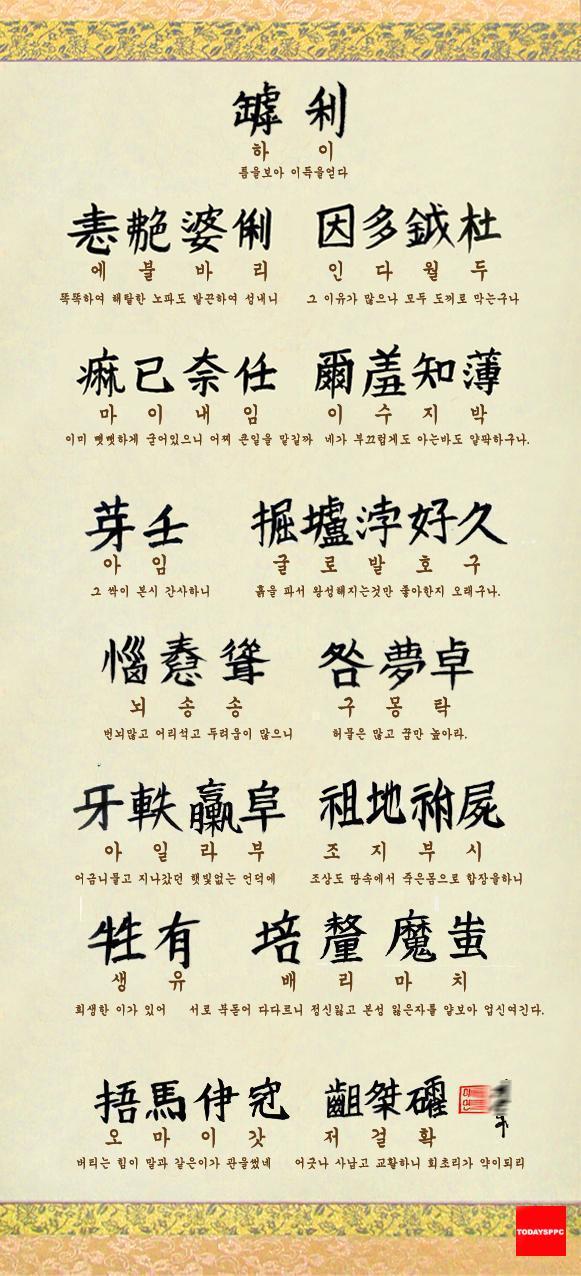 罅 利
하 이
틈을보아 이득을얻다
恚艴婆俐 因多鉞杜
에 불 바 리 인 다 월 두
똑똑하여 해탈한 노파도 발끈하여 성내니 그 이유가 많으나 모두 도끼로 막는구나
痲已奈任 爾羞知薄
마 이 내 임 이 수 지 박
이미 뻣뻣하게 굳어있으니 어찌 큰일을 맡길까 네가 부끄럽게도 아는바도 얄팍하구나.
芽壬 掘壚浡好久
아 임 굴 로 발 호 구
그 싹이 본시 간사하니 흙을 파서 왕성해지는것만 좋아한지 오래구나.
惱憃聳 咎夢卓
뇌 송 송 구 몽 탁
번뇌많고 어리석고 두려움이 많으니 허물은 많고 꿈만 높아라.
牙軼臝阜 祖地祔屍
아 일 라 부 조 지 부 시
어금니물고 지나갔던 햇빛없는 언덕에 조상도 땅속에서 죽은몸으로 합장을하니
牲有 培釐魔蚩
생 유 배 리 마 치
희생한 이가 있어 서로 북돋어 다다르니 정신잃고 본성 잃은자를 얕보아 업신여긴다.
捂馬伊 齟桀矡
오 마 이 갓 저 걸 확
버티는 힘이 말과 같은이가 관을썼네 어긋나 사납고 교활하니 회초리가 약이되리
TODAYSPPC